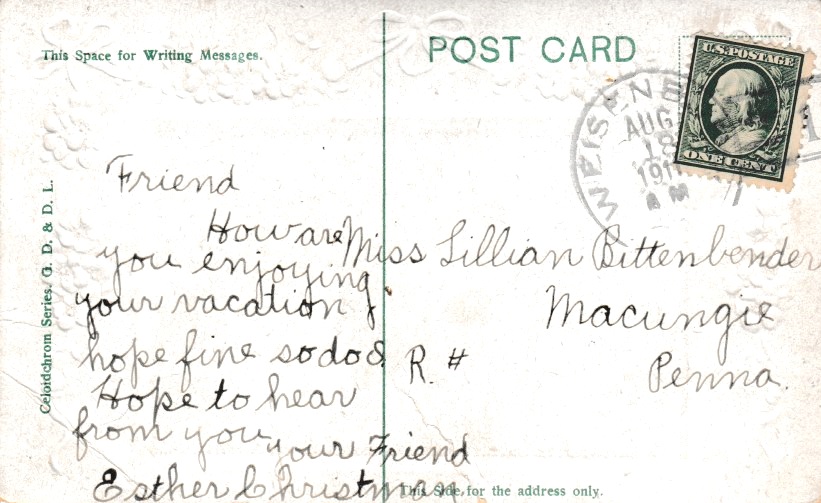 This Space for Writing Messages.
POST CARD
U.S. POSTAGE
ONE CENT
WEISEN
AUG
18
191
A M
Celoidchrom Series. G. D. & D. L.
Friend
How are
you enjoying
your vacation
hope fine so do I
Hope to hear
from you
your Friend
Esther Christman
Miss Lillian Bittenbender
Macungie
R. #
Penna.
This Side for the address only.